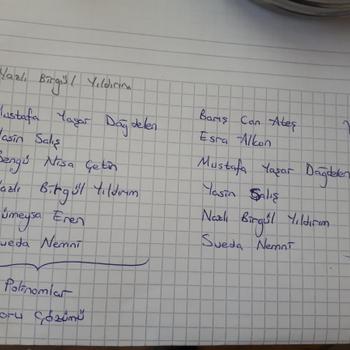 Yazlı Birgül Yıldırım
Mustafa Yaşar Dağdelen
Yasin Salış
Bengü Nisa Çetin
Yazlı Birgül Yıldırım
ümeysa Eren
ueda Nemni
Polinomlar
oru Çözümü
Barış Can Ateş
Esra Alkan
Mustafa Yaşar Dağdelen
Yasin Salış
Nazlı Birgül Yıldırım
Sueda Nemni